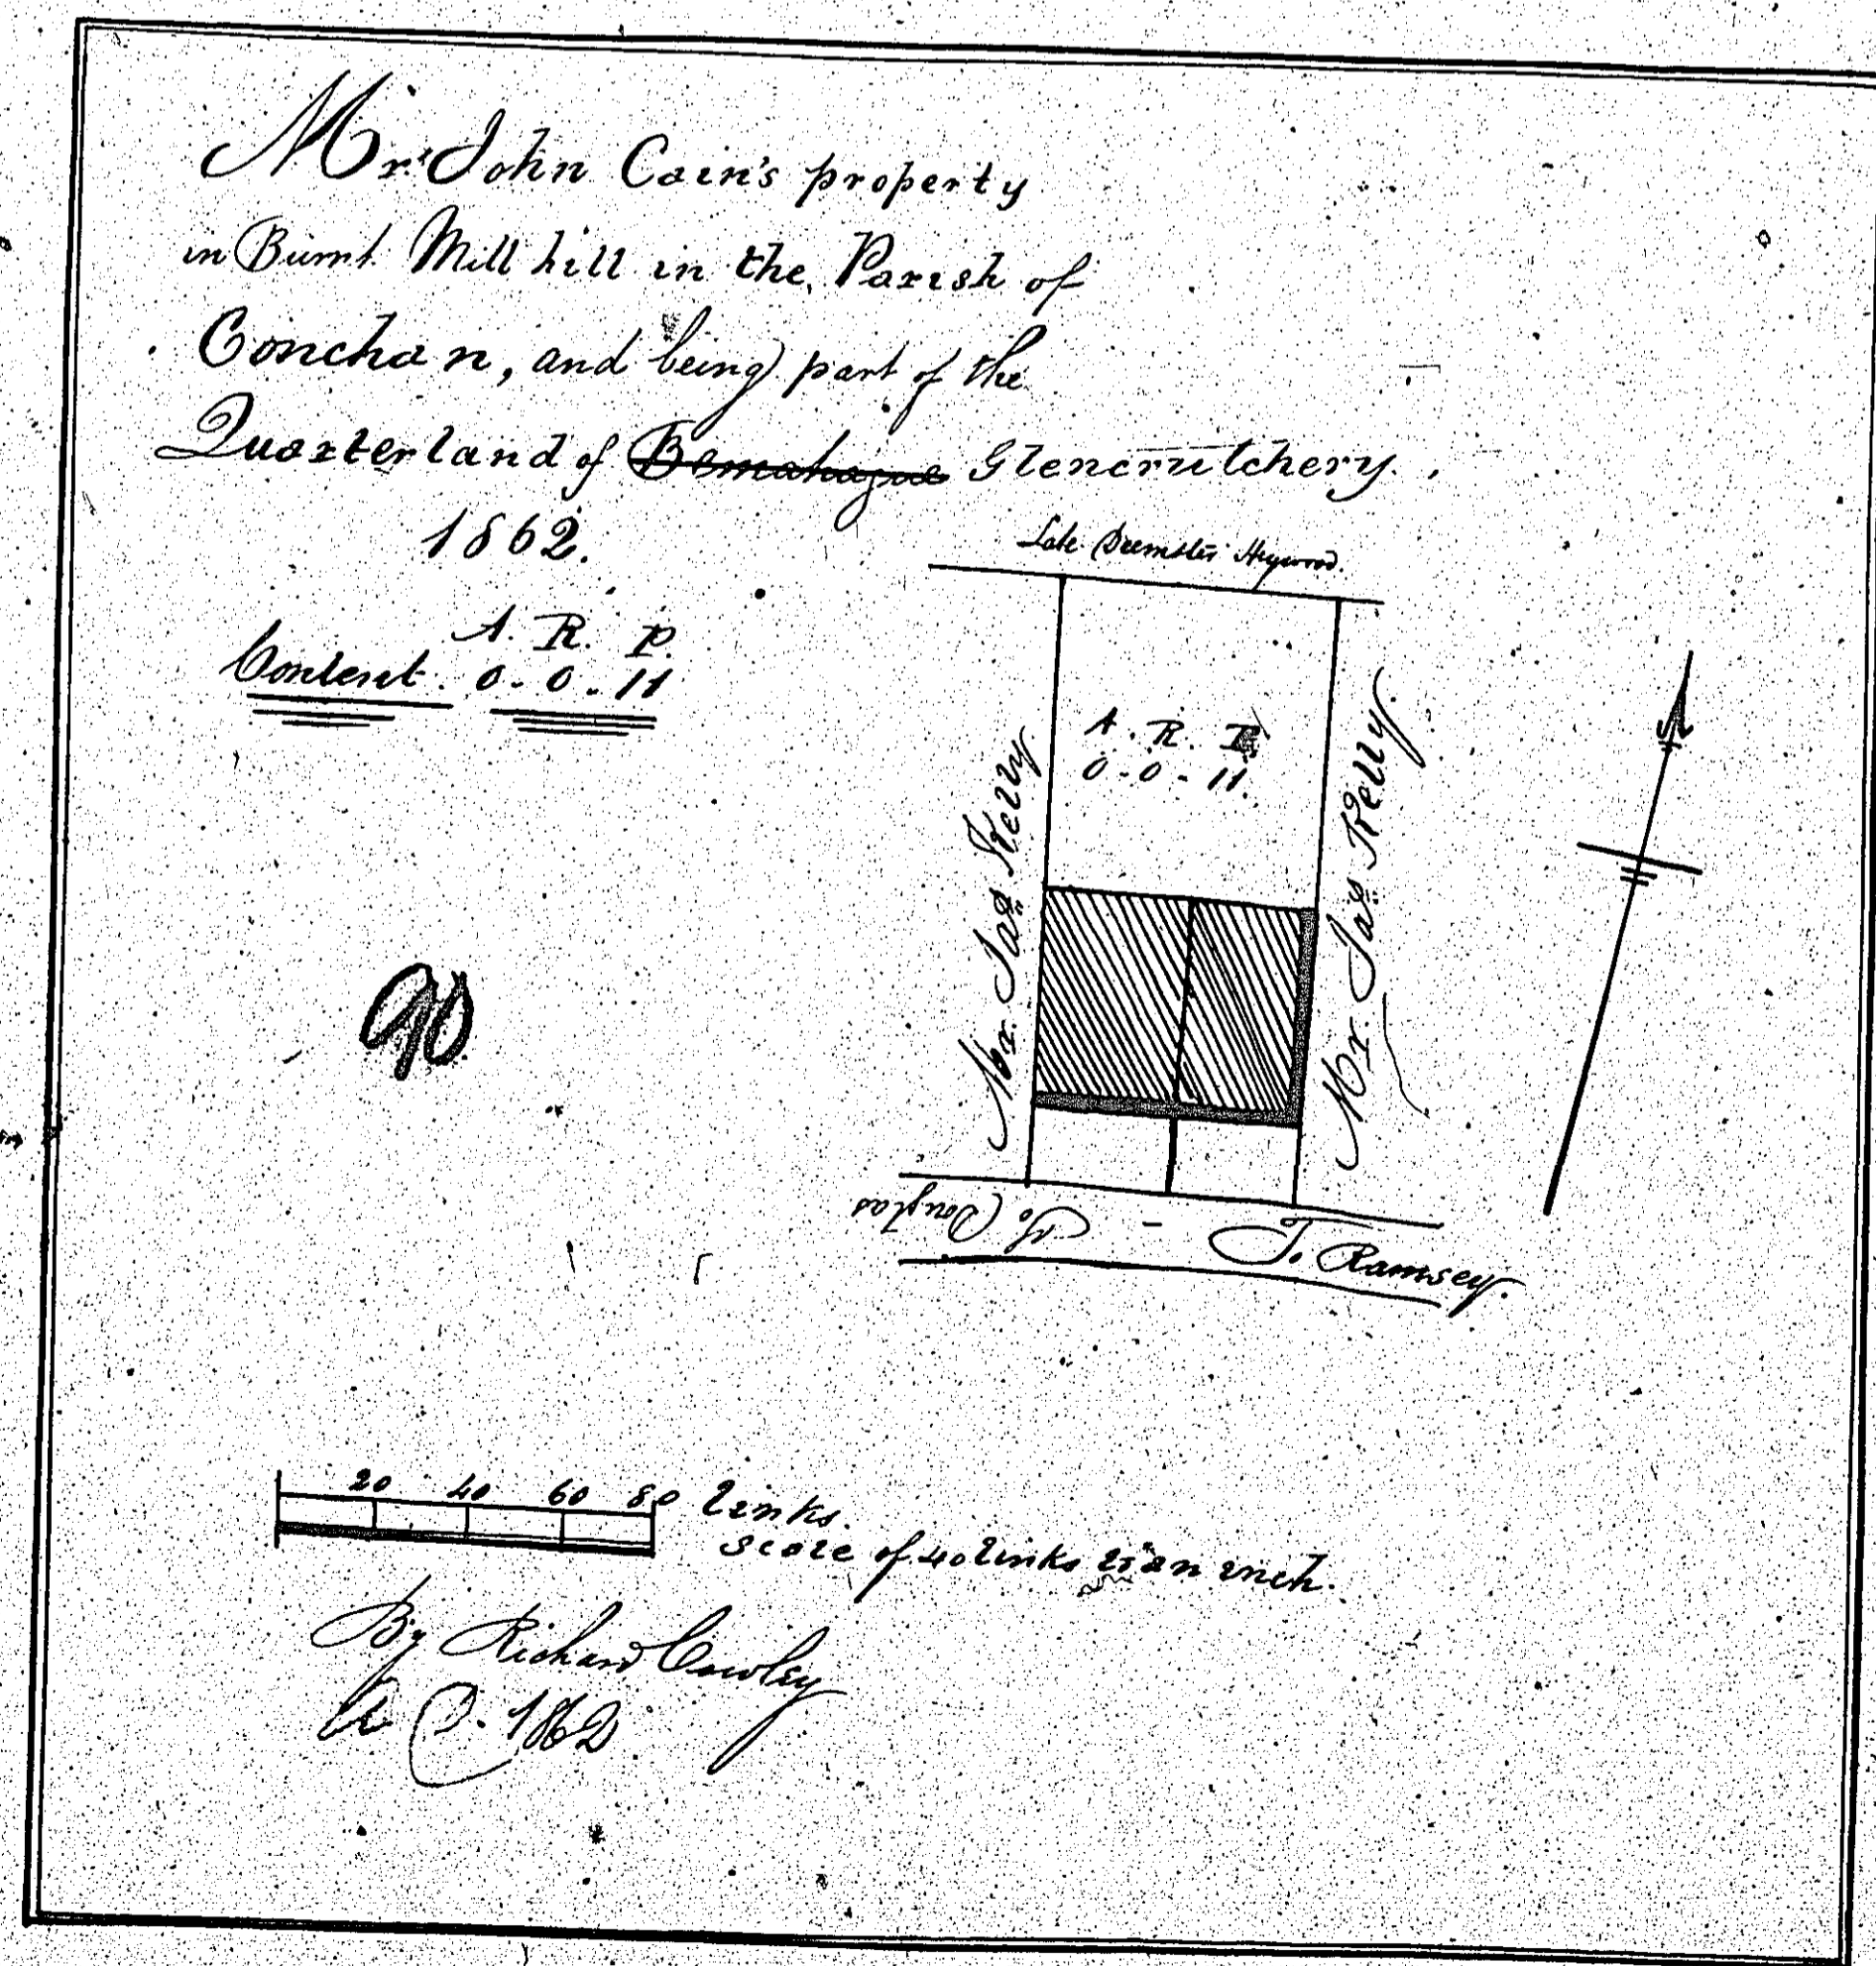 Mr. John Cain's property
in Burnt Mill hill in the Parish of
Conchan, and being part of the
Quarterland of Bemahague Glencrutchery.
1862.
A. R. P.
Content. 0-0-11
Late Deemster Heywood.
A. R. P.
0-0-11.
Mr. Jas Kelly
Mr. Jas Kelly.
90
To Douglas - To Ramsey.
20 40 60 80 links.
Scale of 40 links to an inch.
By Richard Cowley
1862